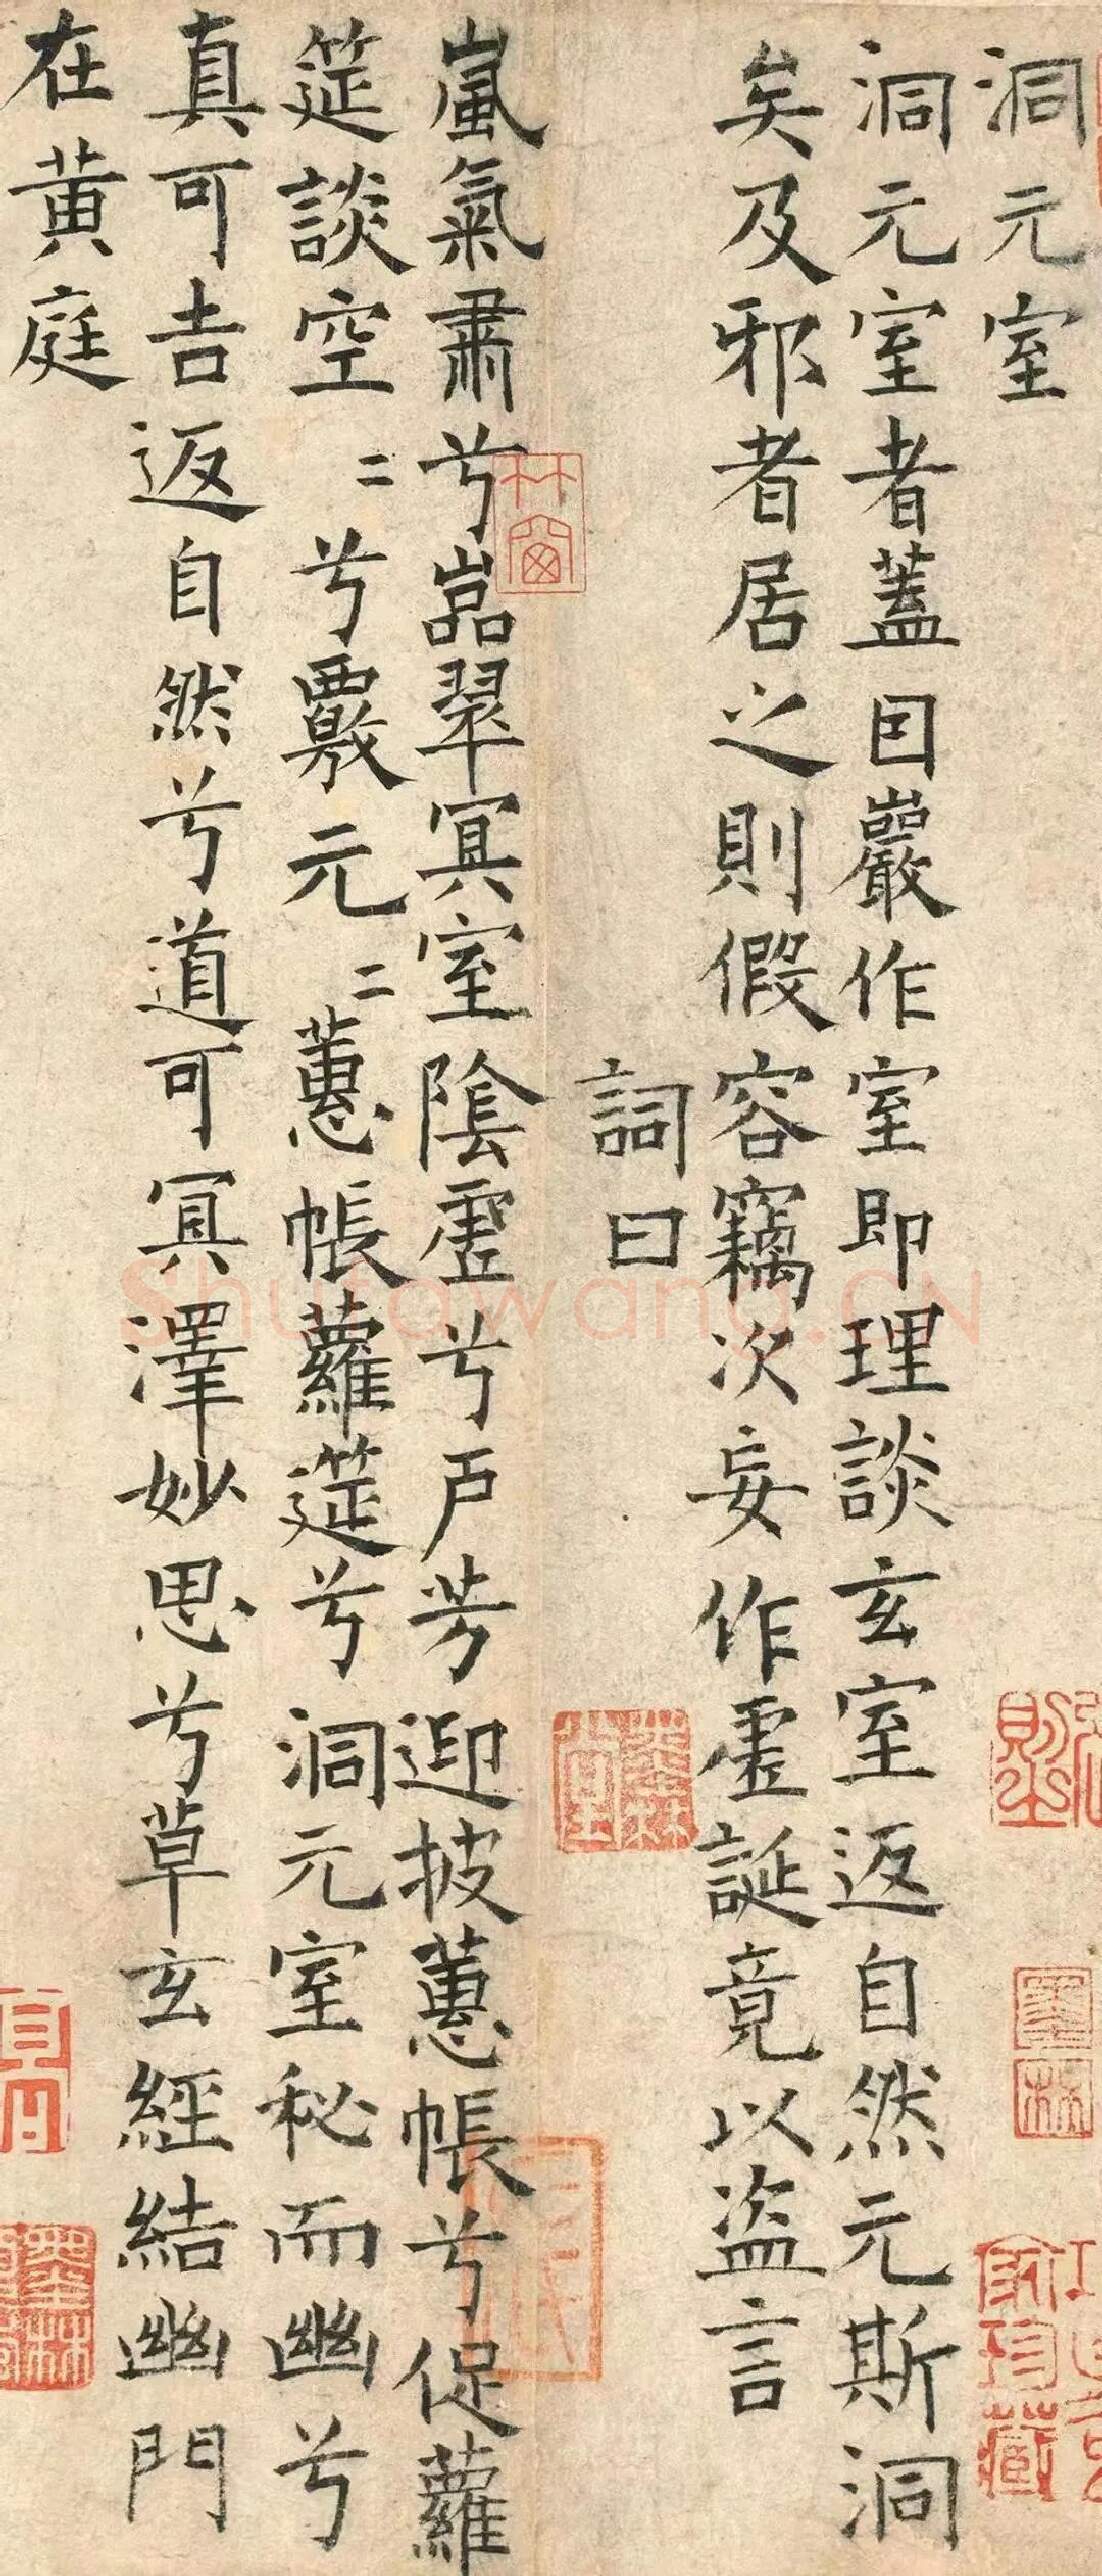 洞元室
洞元室者蓋因巖作室即理談玄室返自然元斯洞
矣及邪者居之則假容竊次妄作虛誕竟以盗言
詞曰
嵐氣肅兮嵒翠冥室陰虛兮戶芳迎披蕙帳兮促蘿
筵談空〻兮覈元〻蕙帳蘿筵兮洞元室秘而幽兮
真可吉返自然兮道可冥澤妙思兮草玄經結幽門
在黄庭
竹窗
墨林
家珍藏
Shufawang.CN